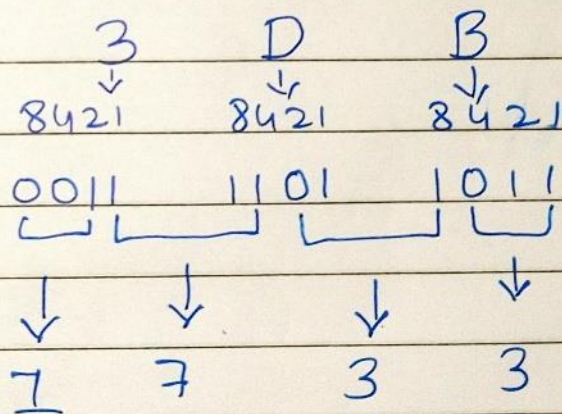 3 D B
8421 8421 8421
0011 1101 1011
1 7 3 3